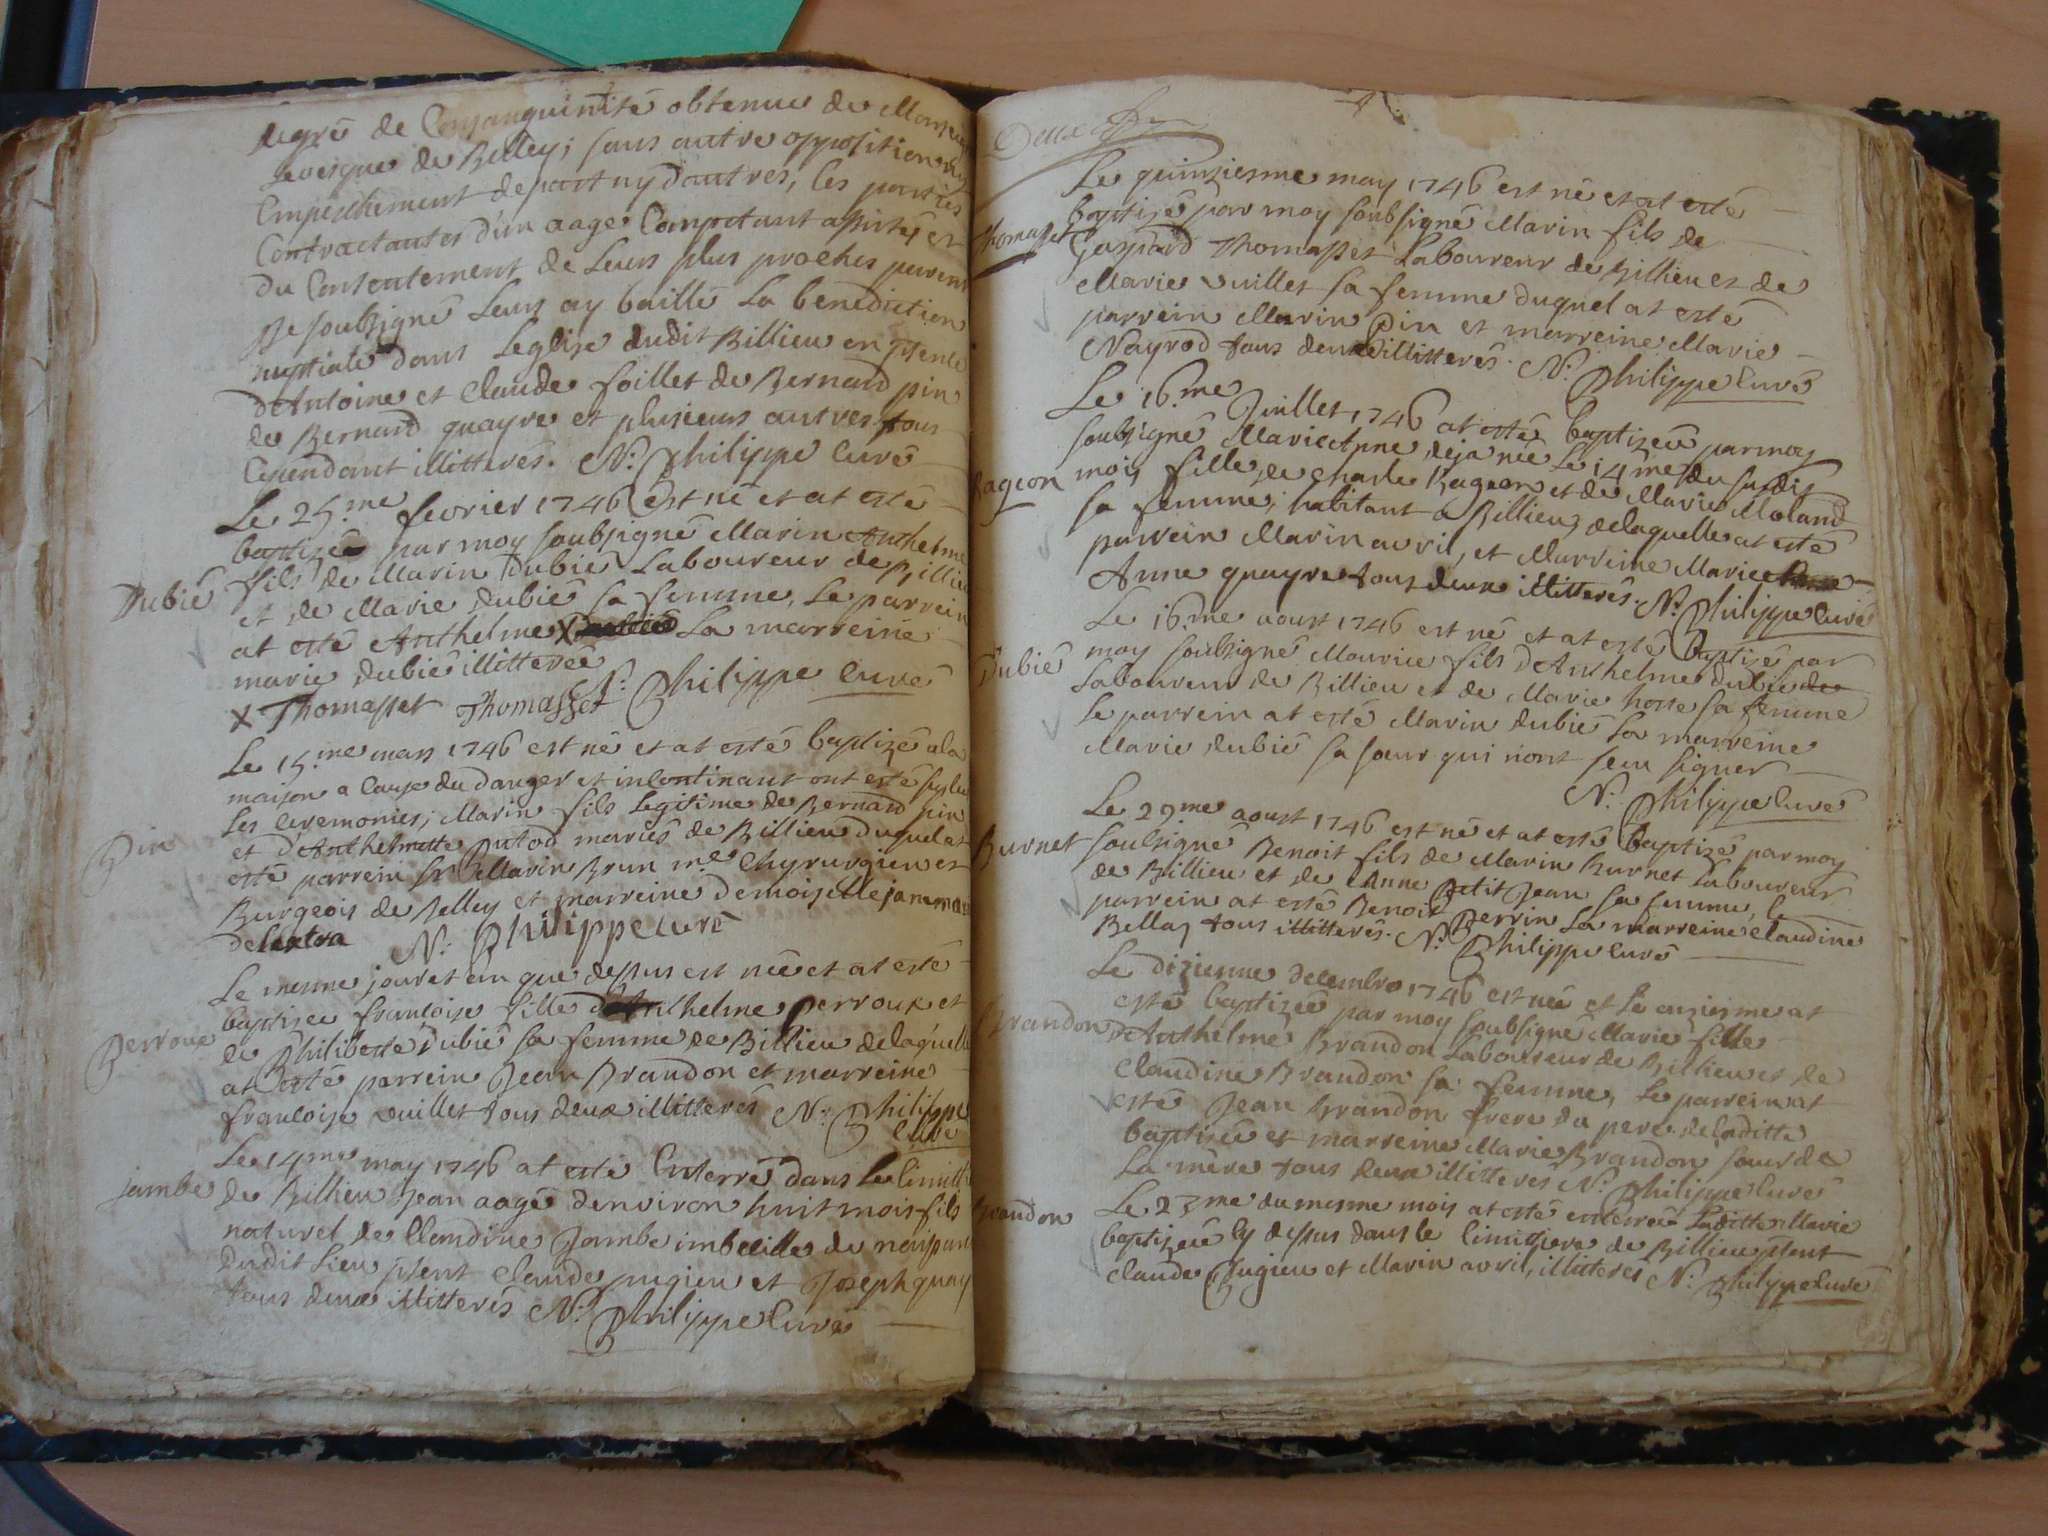 degré de Consanguinité obtenue de Monseigneur
Levesque de Belley; sans autre opposition
Empeschement de part ny d'autres, les parties
Contractantes d'un aage Competant assisteés et
du Consentement de Leurs plus proches parens
Je soubsigné Leurs ay baillé La benediction
nuptiale dans Leglise dudit Billieu en psence
d'Antoine et Claude foillet de Bernard pin
de Bernard quayre et plusieurs autres tous
Cependant illitterés. N: Philippe Curé
Le 25.me fevrier 1746 est né et at esté
baptizé par moy soubsigné Marin Anthelme
Dubié fils de Marin Dubié Laboureur de Billieu
et de Marie Dubié sa femme, Le parrein
at esté Anthelme X La marreine
marie Dubié illitterée
X Thomasset Thomasset N: Philippe Curé
Le 15.me mars 1746 est né et at esté baptizé a la
maison a Cause du danger et incontinant ont esté
Les Ceremonies, Marin fils Legitime de Bernard pin
Pin et d'Anthelmette Putod mariés de Billieu duquel at
esté parrein Sr Marin Brun me Chyrurgien et
Burgeois de Belley et marreine demoiselle
N: Philippe Curé
Le mesme jour et an que dessus est née et at esté
baptizee francoise fille d'Anthelme perroux et
Perroux de Philiberte Dubié sa femme de Billieu delaquelle
at esté parrein Jean Brandon et marreine
francoise vuillet tous deux illitterés N: Philippe
Curé
Le 14me may 1746 at esté Enterré dans Le
jambe de Billieu Jean aagé denviron huit mois fils
naturel de Claudine Jambe imbecille de
dudit Lieu psent Claude pugieu et Joseph quay
tous deux illitterés N: Philippe Curé
Le quinziesme may 1746 est né et at esté
baptizé par moy soubsigné Marin fils de
Thomasset Gaspard Thomasset Laboureur de Billieu et de
Marie vuillet sa femme duquel at esté
parrein Marin Pin et marreine Marie
Nayrod tous deux illitterés. N: Philippe Curé
Le 16.me Juillet 1746 at esté baptizeé par moy
soubsigné Marie Anne, deja neé Le 14me du susdit
Rageon mois, fille de Charle Rageon et de Marie Moland
sa femme, habitant a Billieu, delaquelle at esté
parrein Marin avril, et Marreine Marie
Anne quayre tous deux illitterés. N: Philippe Curé
Le 16.me aoust 1746 est né et at esté baptizé par
Dubié moy soubsigné Maurice fils d'Anthelme Dubié
Laboureur de Billieu et de Marie hoste sa femme
Le parrein at esté Marin Dubié La marreine
Marie Dubié sa sœur qui n'ont sceu signer
N: Philippe Curé
Le 29.me aoust 1746 est né et at esté baptizé par moy
Burnet soubsigné Benoit fils de Marin Burnet Laboureur
de Billieu et de Anne Petit Jean sa femme, le
parrein at esté Benoit Perrin La marreine Claudine
Bellay tous illitterés. N: Philippe Curé
Le dizieme decembre 1746 est neé et Le onziesme at
esté baptizée par moy soubsigné Marie fille
Brandon d'Anthelme Brandon Laboureur de Billieu et de
Claudine Brandon sa femme, Le parrein at
esté Jean Brandon frere du pere de laditte
baptizée et marreine Marie Brandon sœur de
La mère tous deux illitterés N: Philippe Curé
Brandon Le 23me du mesme mois at esté enterreé Laditte Marie
baptizeé Cy dessus dans le Cimitiere de Billieu psent
Claude Pugieu et Marin avril, illiterés N: Philippe Curé